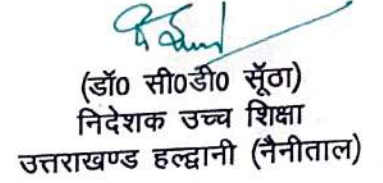 (डॉ0 सी0डी0 सूँठा)
निदेशक उच्च शिक्षा
उत्तराखण्ड हल्द्वानी (नैनीताल)